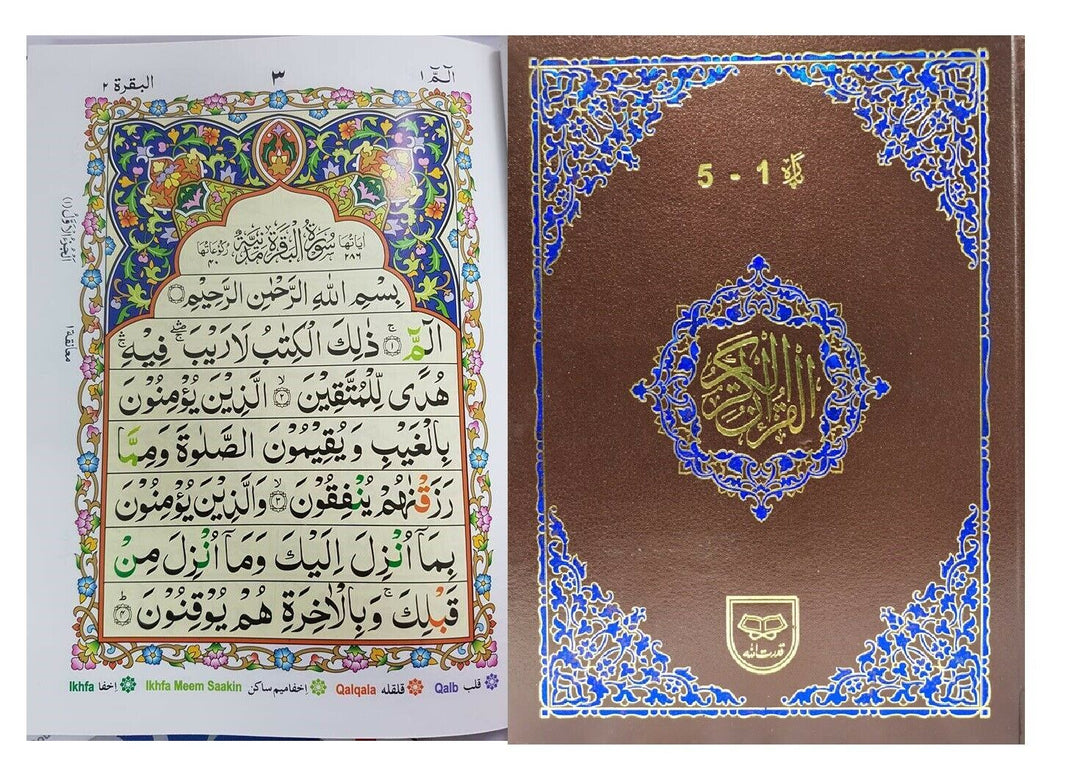 البقرة ٢
٣
الٓمّٓ ١
الجزء الاول (١)
معانقة ١
اٰیَاتُهَا ٢٨٦
سُوْرَةُ الْبَقَرَةِ مَدَنِیَّةٌ
رُكُوْعَاتُهَا ٤٠
بِسْمِ اللّٰهِ الرَّحْمٰنِ الرَّحِیْمِ
الٓمّٓ ۚ ١ ذٰلِكَ الْكِتٰبُ لَا رَیْبَ ۛۖ فِیْهِ ۛۚ
هُدًی لِّلْمُتَّقِیْنَ ۙ ٢ الَّذِیْنَ یُؤْمِنُوْنَ
بِالْغَیْبِ وَ یُقِیْمُوْنَ الصَّلٰوةَ وَ مِمَّا
رَزَقْنٰهُمْ یُنْفِقُوْنَ ۙ ٣ وَالَّذِیْنَ یُؤْمِنُوْنَ
بِمَاۤ اُنْزِلَ اِلَیْكَ وَ مَاۤ اُنْزِلَ مِنْ
قَبْلِكَ ۚ وَ بِالْاٰخِرَةِ هُمْ یُوْقِنُوْنَ ؕ ٤
Ikhfa اخفا Ikhfa Meem Saakin اخفامیم ساکن Qalqala قلقله Qalb قلب
پارہ 1 - 5
القرآن الكريم
قدرت اللہ